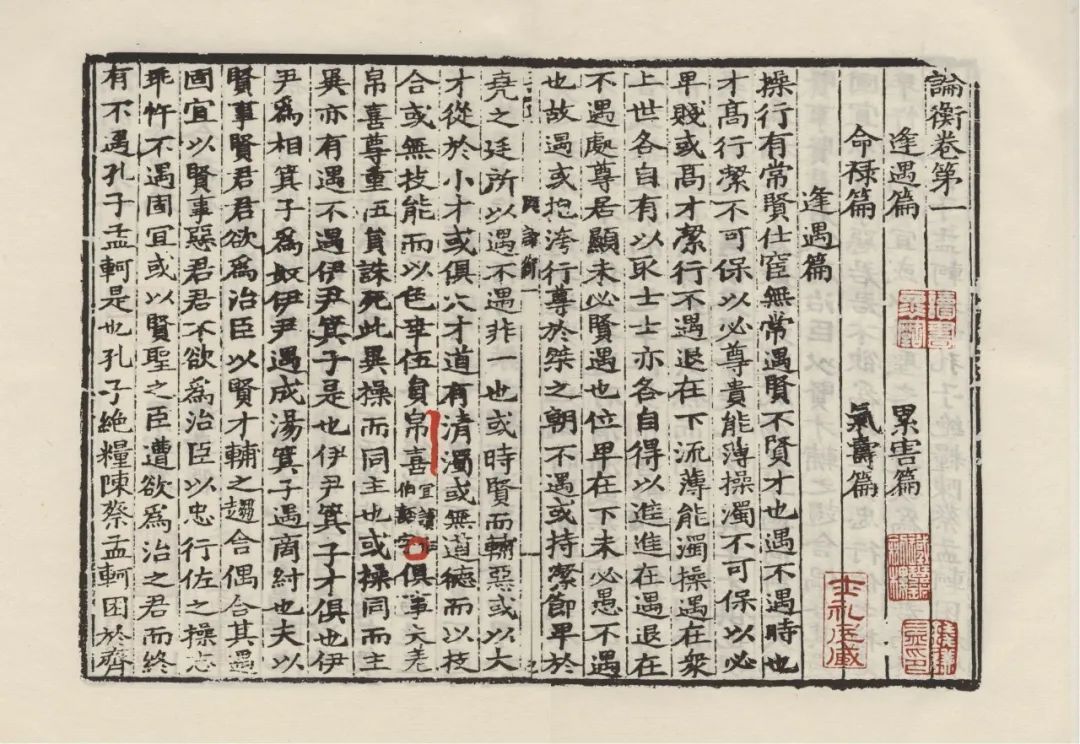 論衡卷第一
逢遇篇 累害篇
命禄篇 氣壽篇
逢遇篇
操行有常賢仕宦無常遇賢不賢才也遇不遇時也
才髙行潔不可保以必尊貴能薄操濁不可保以必
卑賤或髙才潔行不遇退在下流薄能濁操遇在衆
上世各自有以取士士亦各自得以進進在遇退在
不遇處尊居顯未必賢遇也位卑在下未必愚不遇
也故遇或抱洿行尊於桀之朝不遇或持潔節卑於
堯之廷所以遇不遇非一也或時賢而輔惡或以大
才從於小才或俱大才道有清濁或無道德而以技
合或無技能而以色幸伍員帛喜宜讀伯嚭字俱事夫差
帛喜尊重伍員誅死此異操而同主也或操同而主
異亦有遇不遇伊尹箕子是也伊尹箕子才俱也伊
尹爲相箕子爲奴伊尹遇成湯箕子遇商紂也夫以
賢事賢君君欲爲治臣以賢才輔之趨舍偶合其遇
固宜以賢事惡君君不欲爲治臣以忠行佐之操志
乖忤不遇固宜或以賢聖之臣遭欲爲治之君而終
有不遇孔子孟軻是也孔子絶糧陳蔡孟軻困於齊
士礼居藏